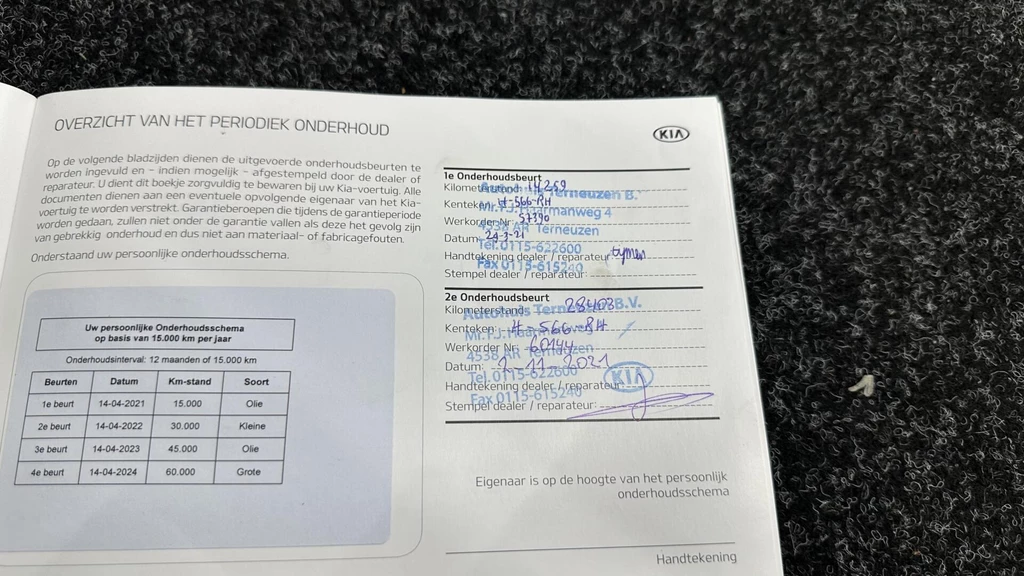 OVERZICHT VAN HET PERIODIEK ONDERHOUD
KIA
Op de volgende bladzijden dienen de uitgevoerde onderhoudsbeurten te
worden ingevuld en - indien mogelijk - afgestempeld door de dealer of
reparateur. U dient dit boekje zorgvuldig te bewaren bij uw Kia-voertuig. Alle
documenten dienen aan een eventuele opvolgende eigenaar van het Kia-
voertuig te worden verstrekt. Garantieberoepen die tijdens de garantieperiode
worden gedaan, zullen niet onder de garantie vallen als deze het gevolg zijn
van gebrekkig onderhoud en dus niet aan materiaal- of fabricagefouten.
Onderstaand uw persoonlijke onderhoudsschema.
Uw persoonlijke Onderhoudsschema
op basis van 15.000 km per jaar
Onderhoudsinterval: 12 maanden of 15.000 km
Beurten Datum Km-stand Soort
1e beurt 14-04-2021 15.000 Olie
2e beurt 14-04-2022 30.000 Kleine
3e beurt 14-04-2023 45.000 Olie
4e beurt 14-04-2024 60.000 Grote
1e Onderhoudsbeurt
Kilometerstand: 14259
Terneuzen B.
Kenteken: H-566-RH
Mr. F.J. Haarmanweg 4
Werkorder Nr.: 57390
4538 AR Terneuzen
Datum: 24-3-21
Tel. 0115-622600
Handtekening dealer / reparateur:
Fax 0115-615240
Stempel dealer / reparateur:
2e Onderhoudsbeurt
Kilometerstand: 28403
B.V.
Kenteken: H-566-RH
Werkorder Nr.: 60144
4538 AR Terneuzen
Datum: 2 11 2021
Tel. 0115-622600
KIA
Handtekening dealer / reparateur:
Fax 0115-615240
Stempel dealer / reparateur:
Eigenaar is op de hoogte van het persoonlijk
onderhoudsschema
Handtekening